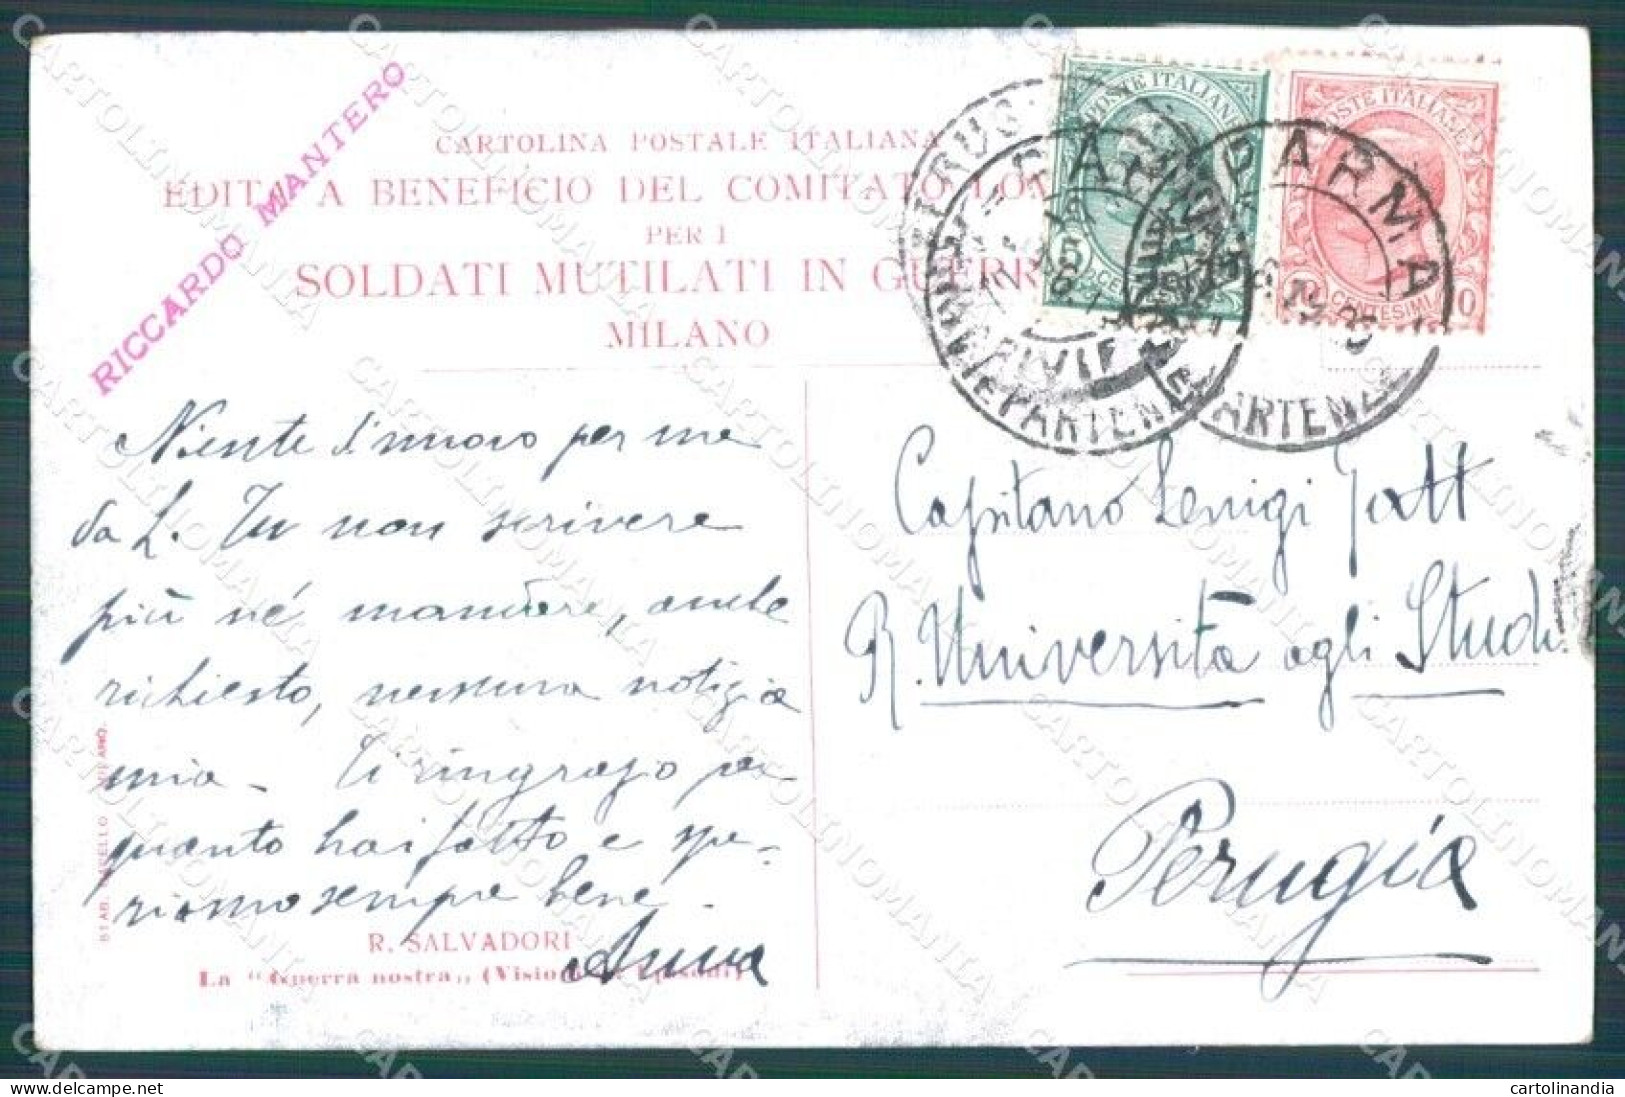 RICCARDO MANTERO
CARTOLINA POSTALE ITALIANA
EDITA A BENEFICIO DEL COMITATO LOM
PER I
SOLDATI MUTILATI IN GUERR
MILANO
POSTE ITALIANE
5
POSTE ITALIANE
10 CENTESIMI
PARMA
PARTENZA
PARMA
PARTENZA
Niente di nuovo per me
da L. Tu non scrivere
più né mandare, anche
richiesto, nessuna notizia
mia - Ti ringrazio per
quanto hai fatto e spe-
riamo sempre bene -
Anna
Capitano Gatt
R. Università agli Studi
Perugia
STAB. MILANO.
R. SALVADORI
La "Guerra nostra" (Visioni ed Episodi)
CARTOLINOMANIA
cartolinandia